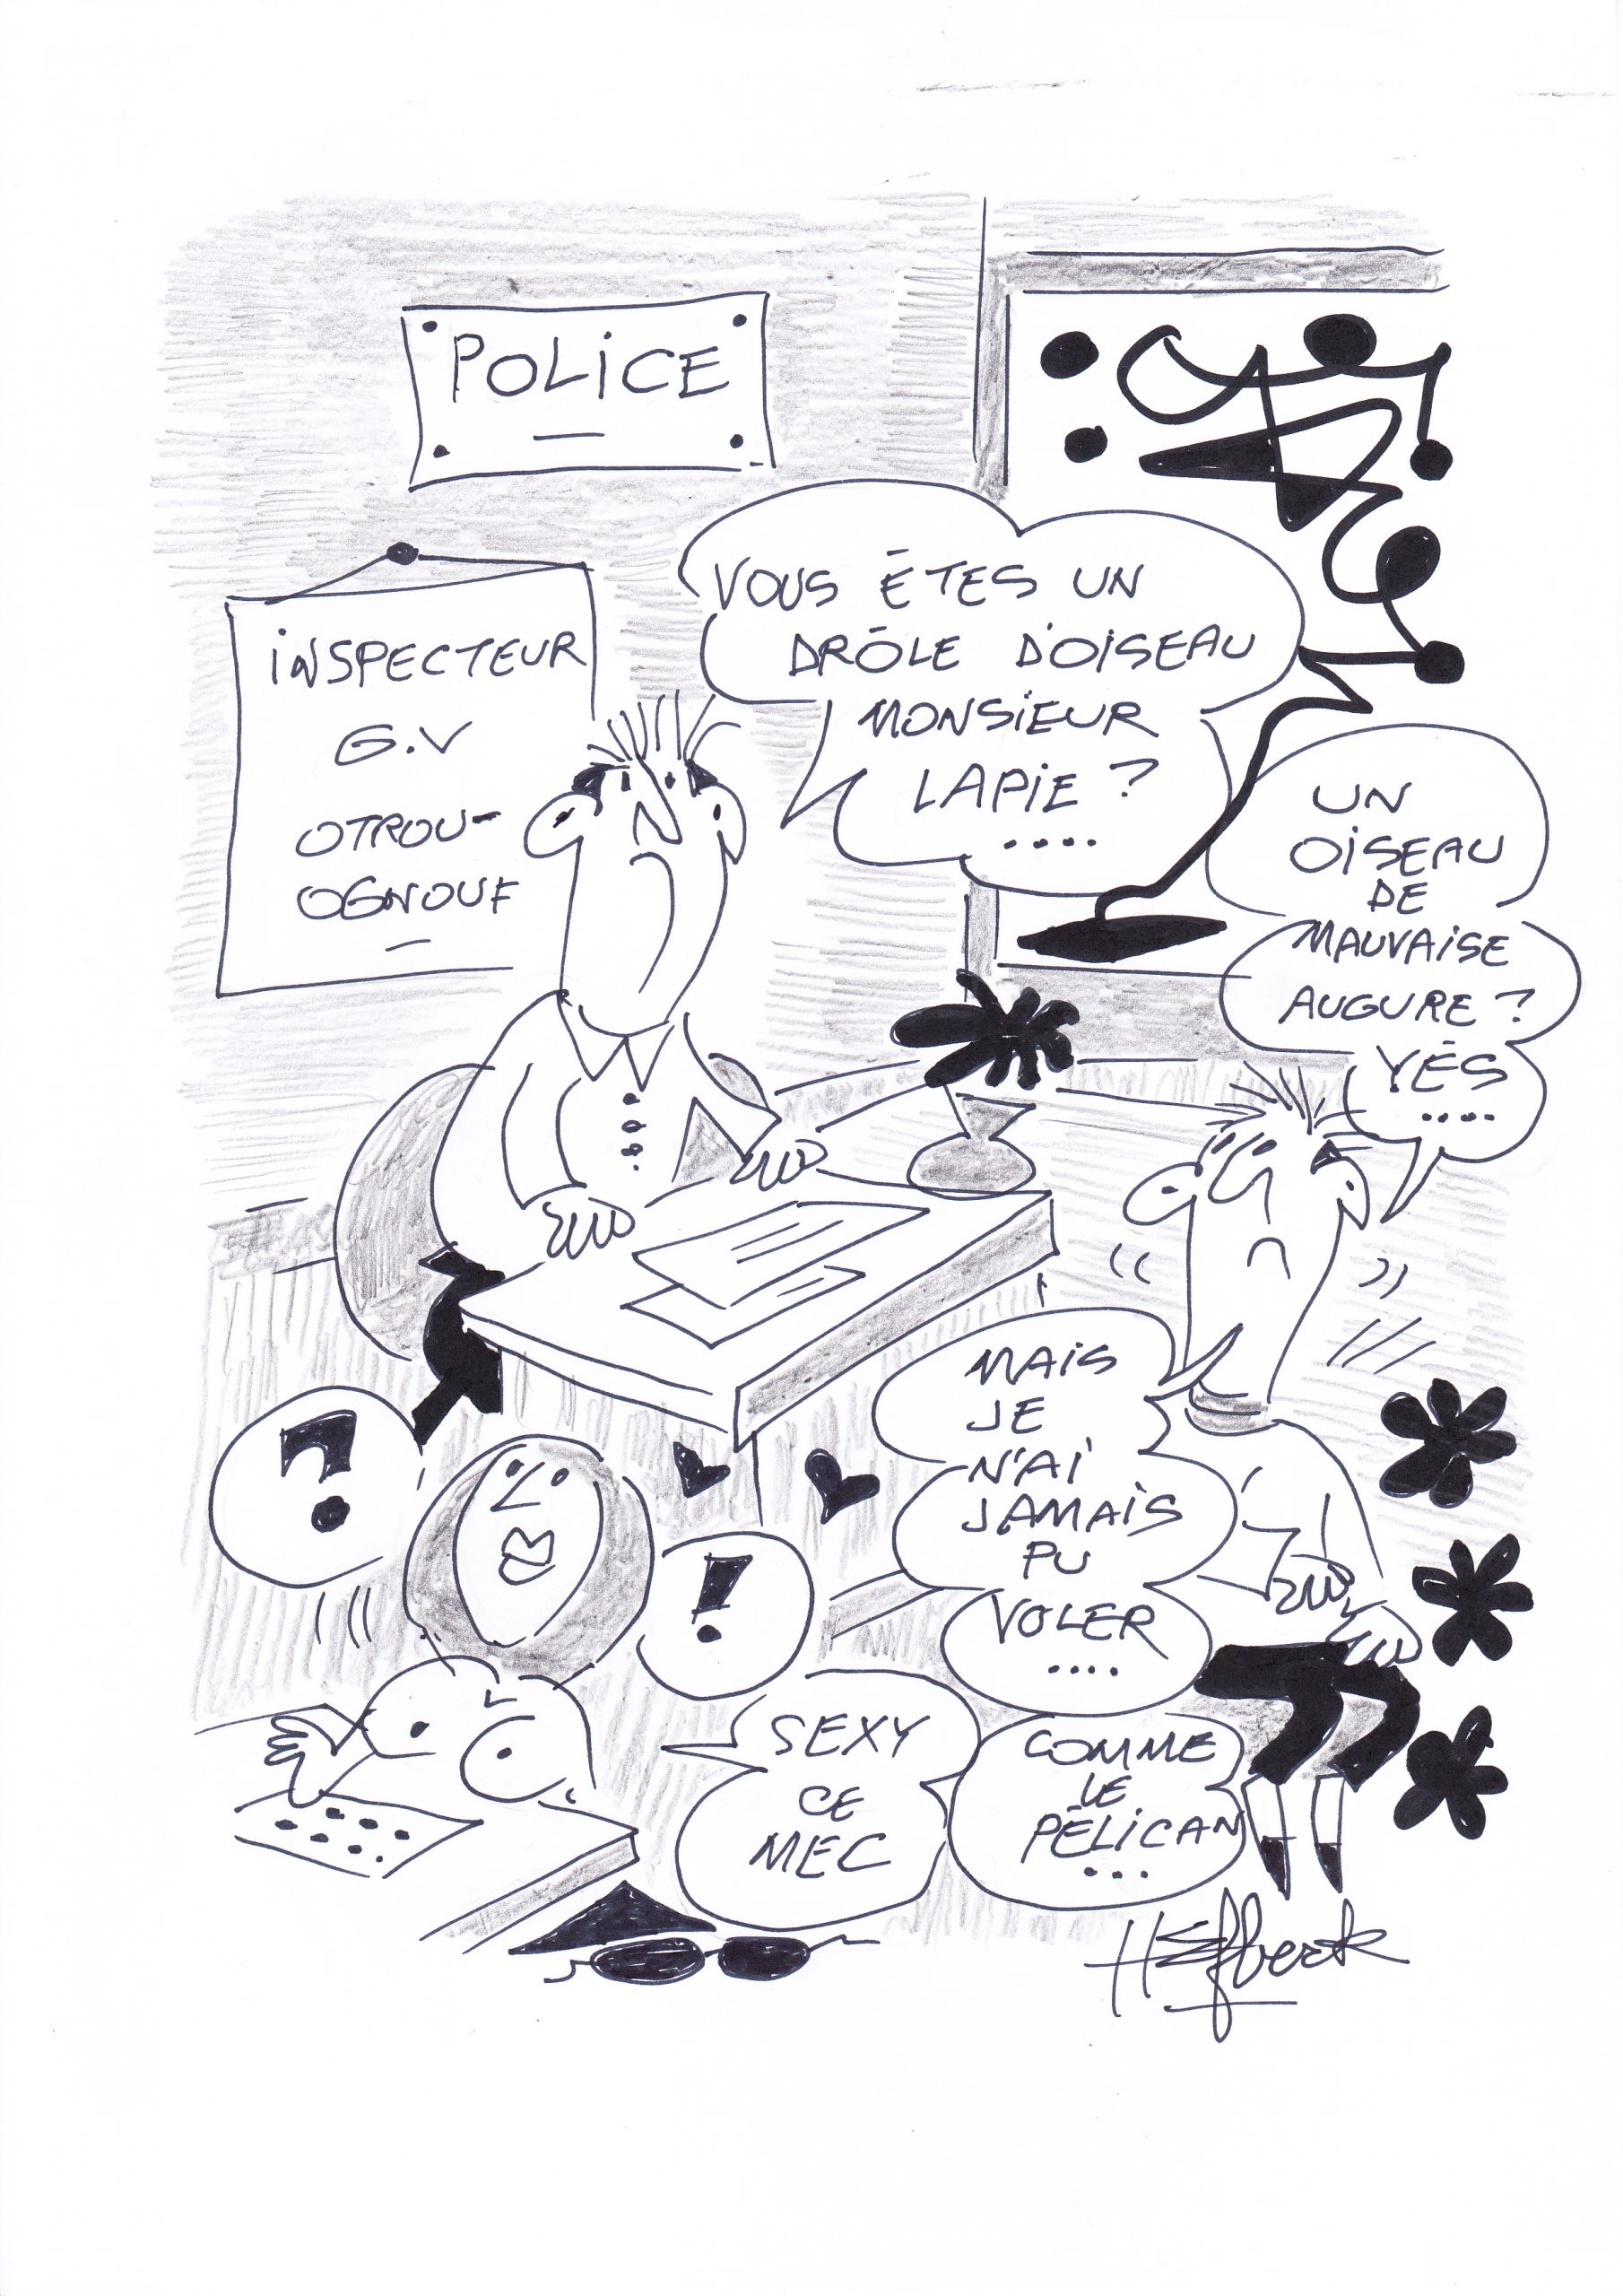 POLICE
INSPECTEUR
G.V
OTROU-
OGNOUF
VOUS ÊTES UN
DRÔLE D'OISEAU
MONSIEUR
LAPIE ?
....
UN
OISEAU
DE
MAUVAISE
AUGURE ?
YÉS
....
MAIS
JE
N'AI
JAMAIS
PU
VOLER
....
?
!
SEXY
CE
MEC
COMME
LE
PÉLICAN
...